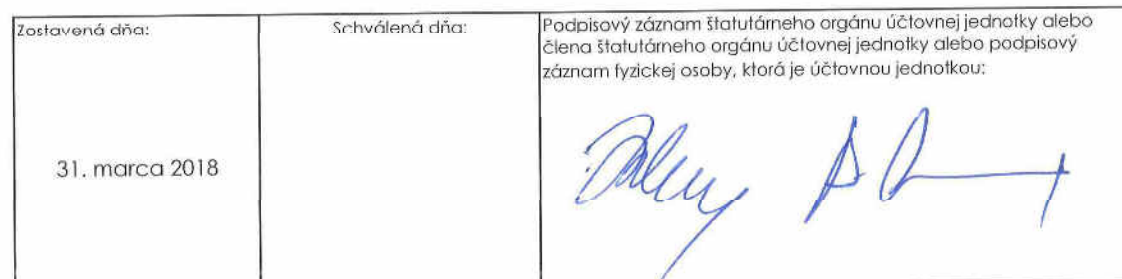 Zostavená dňa:
Schválená dňa:
Podpisový záznam štatutárneho orgánu účtovnej jednotky alebo
člena štatutárneho orgánu účtovnej jednotky alebo podpisový
záznam fyzickej osoby, ktorá je účtovnou jednotkou:
31. marca 2018